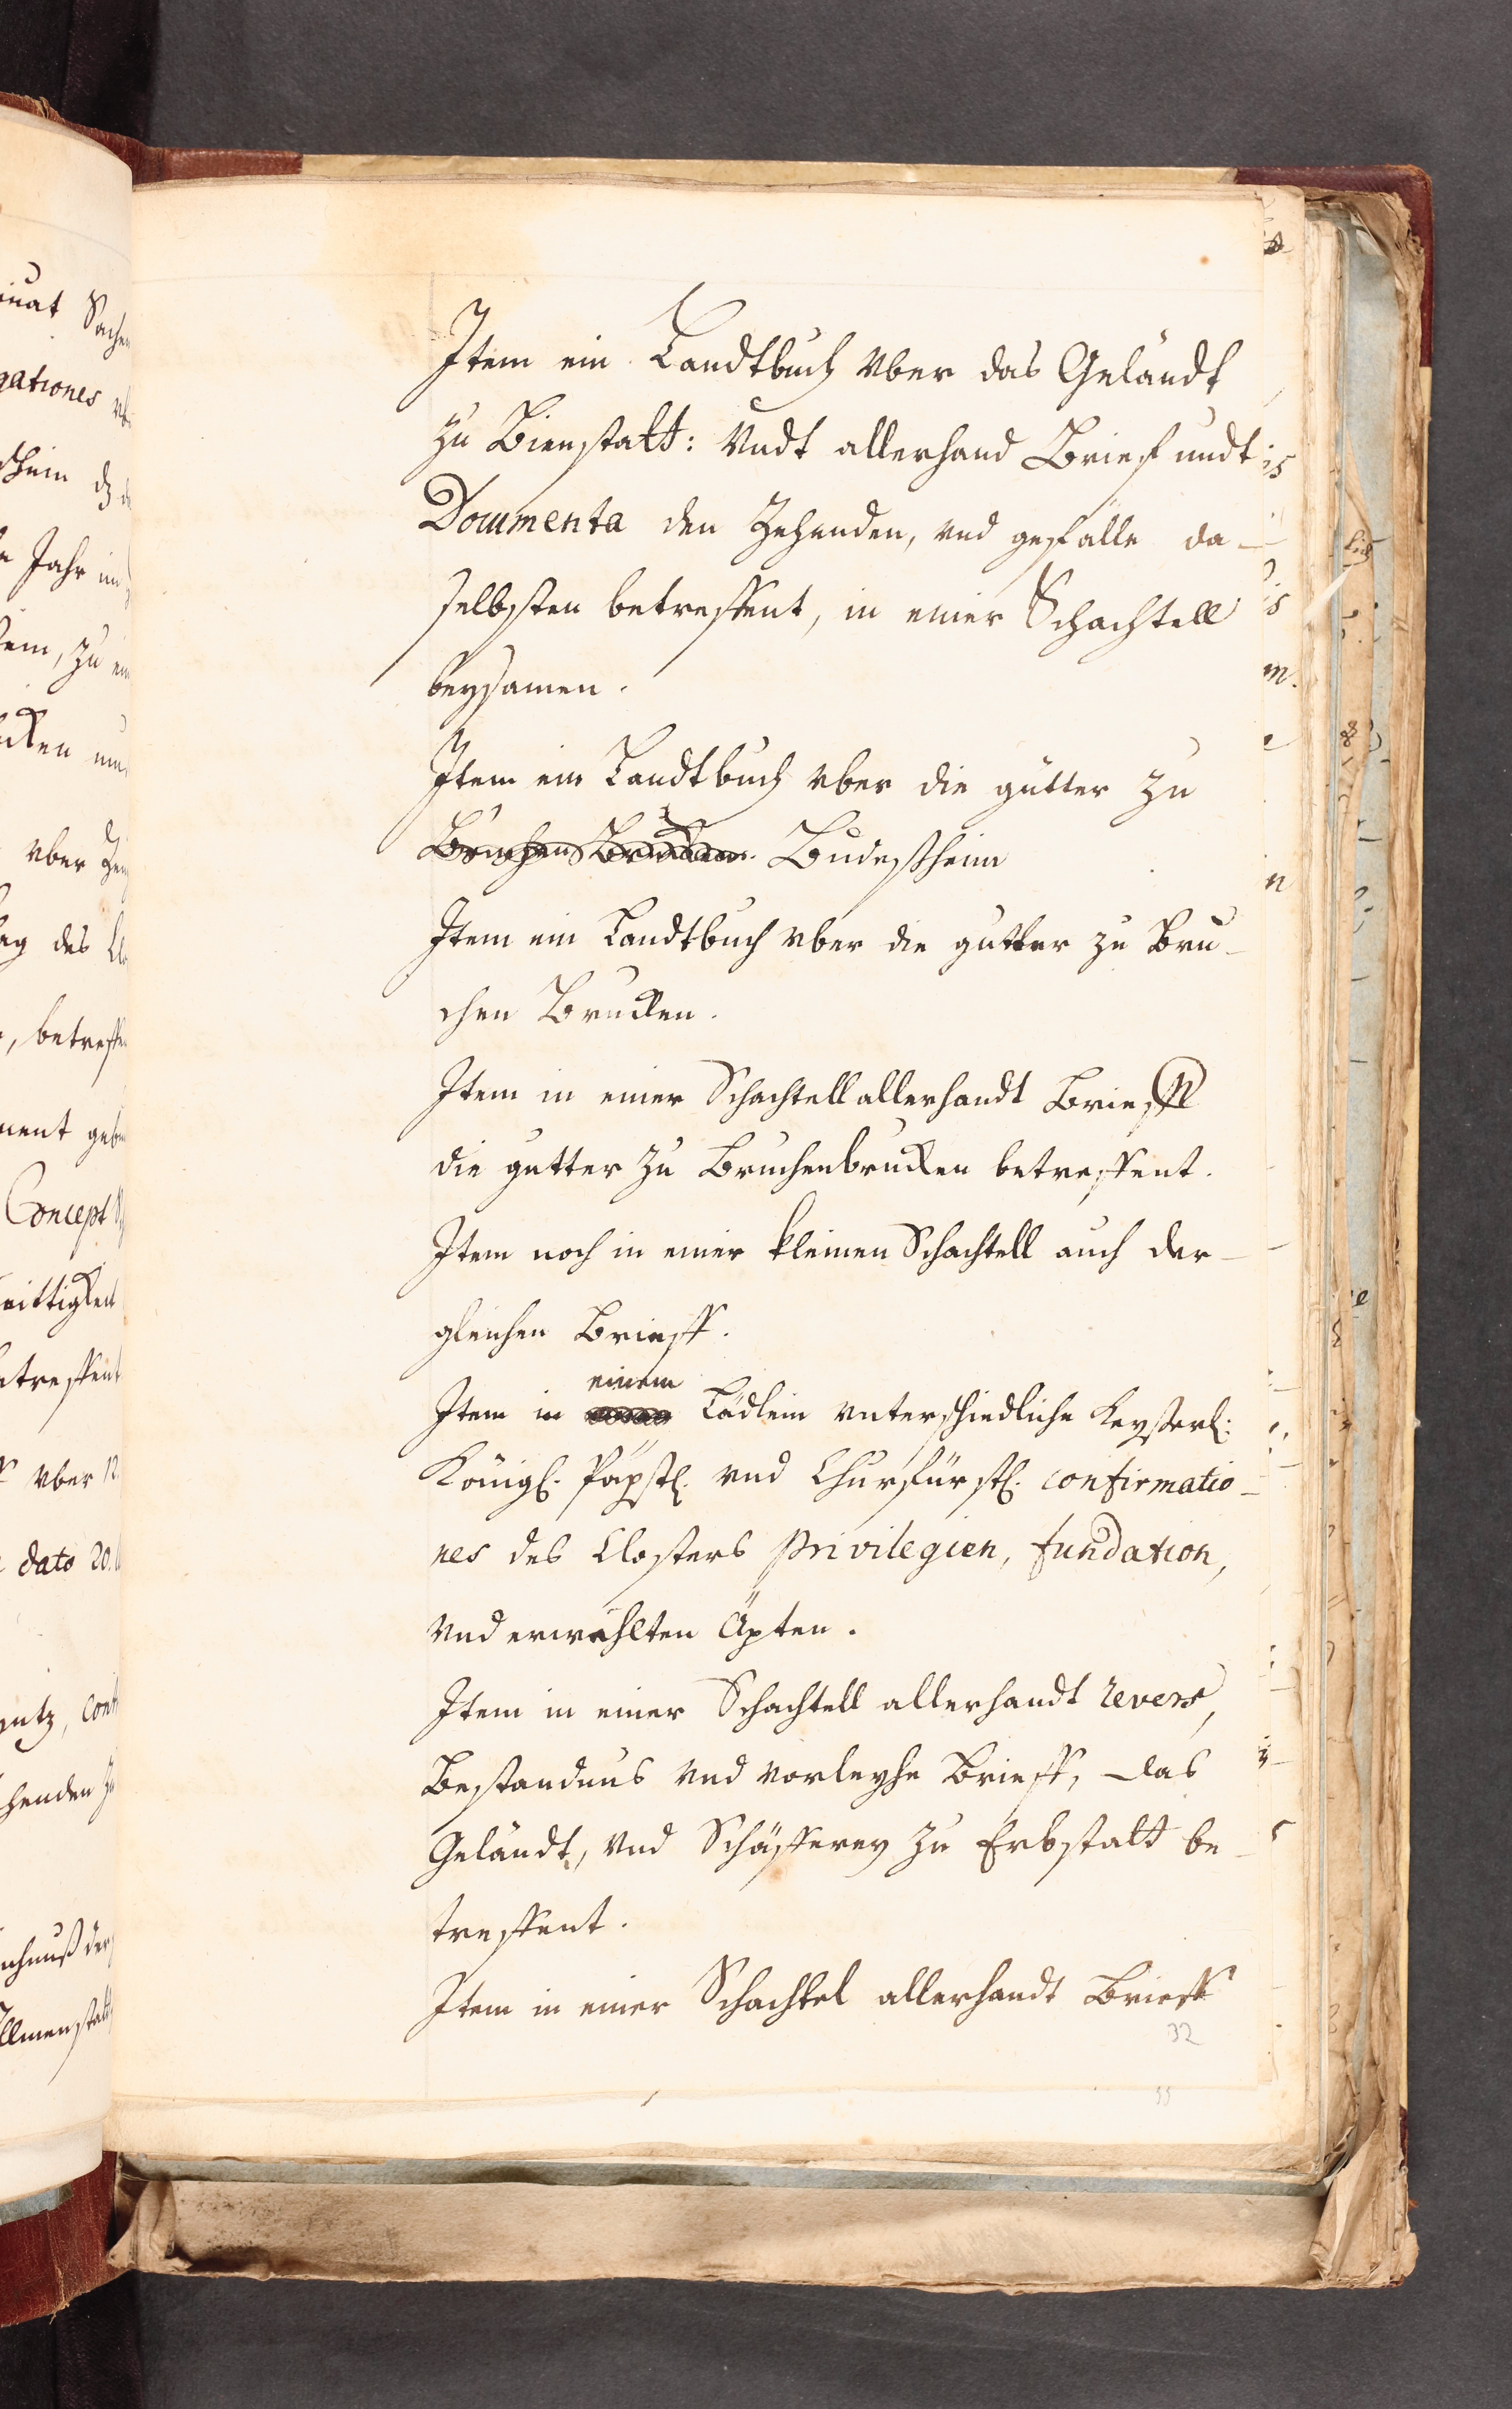 Item ein Landtbuch vber das Geländt
zu Bienstatt: Vndt allerhand Brief undt
Documenta den Zehenden, vnd gefälle da-
selbsten betreffent, in einer Schachtell
beysamen.
Item ein Landtbuch vber die gütter zu
Bruchen Brucken. Büdeßheim
Item ein Landtbuch vber die gütter zu Bru-
chen Brucken.
Item in einer Schachtell allerhandt Brieff
die gütter zu Bruchenbrucken betreffent.
Item noch in einer kleinen Schachtell auch der-
gleichen Brieff.
einem
Item in Lädlein vnterschiedliche Keyserl:
Königl. Päpstl. vnd Churfürstl. confirmatio-
nes des Closters privilegien, fundation,
vnd erwehlten Äpten.
Item in einer Schachtell allerhandt revers,
Bestandnus vnd vorleyhe Brieff, das
Geländt, vnd Schäfferey zu Erbstatt be-
treffent.
Item in einer Schachtel allerhandt Brieff
32